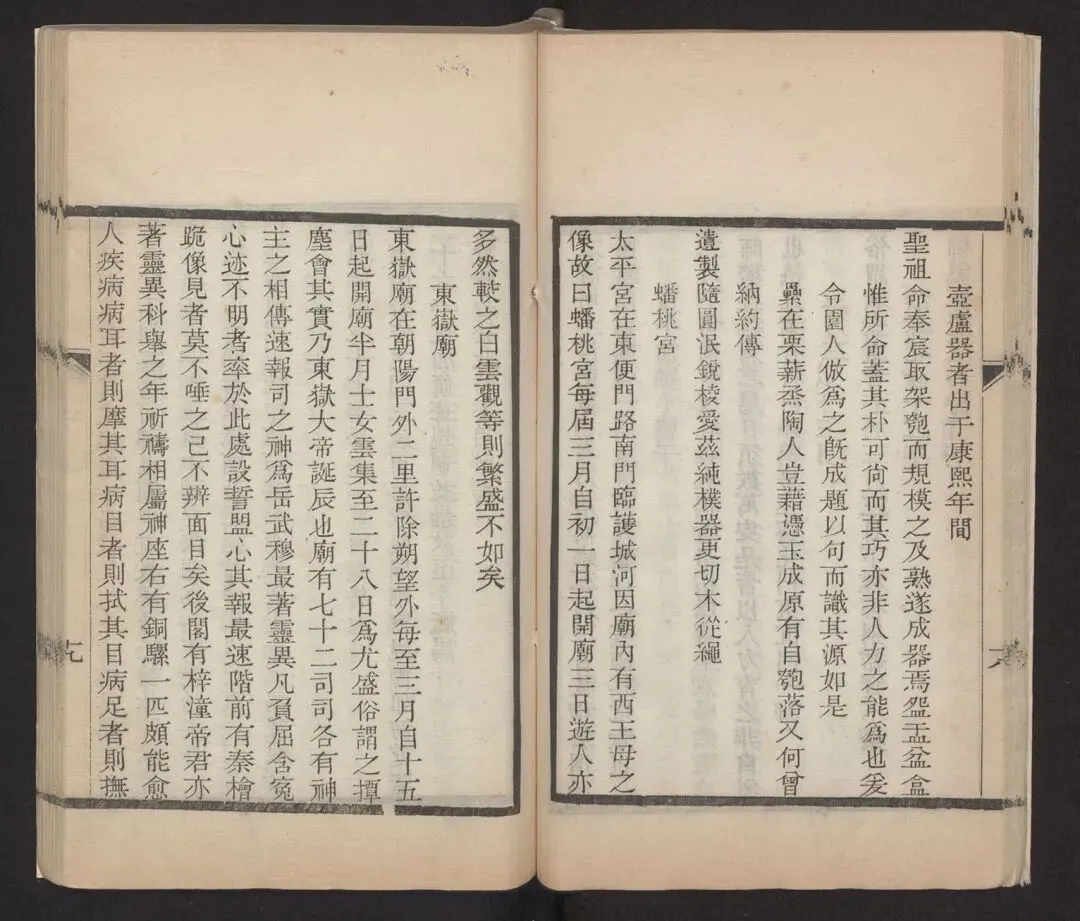 壺盧器者出于康熙年間
聖祖命奉宸取架匏而規模之及熟遂成器焉盌盂盆盒
惟所命蓋其朴可尙而其巧亦非人力之能爲也爰
令園人倣爲之旣成題以句而識其源如是
纍在栗薪烝陶人豈藉憑玉成原有自匏落又何曾
納約傳
遺製隨圓泯銳棱愛茲純樸器更切木從繩
蟠桃宮
太平宮在東便門路南門臨護城河因廟內有西王母之
像故曰蟠桃宮每屆三月自初一日起開廟三日遊人亦
六
多然較之白雲觀等則繁盛不如矣
東嶽廟
東嶽廟在朝陽門外二里許除朔望外每至三月自十五
日起開廟半月士女雲集至二十八日爲尤盛俗謂之撢
塵會其實乃東嶽大帝誕辰也廟有七十二司司各有神
主之相傳速報司之神爲岳武穆最著靈異凡負屈含冤
心迹不明者率於此處設誓盟心其報最速階前有秦檜
跪像見者莫不唾之已不辨面目矣後閣有梓潼帝君亦
著靈異科舉之年祈禱相屬神座右有銅騾一匹頗能愈
人疾病病耳者則摩其耳病目者則拭其目病足者則撫